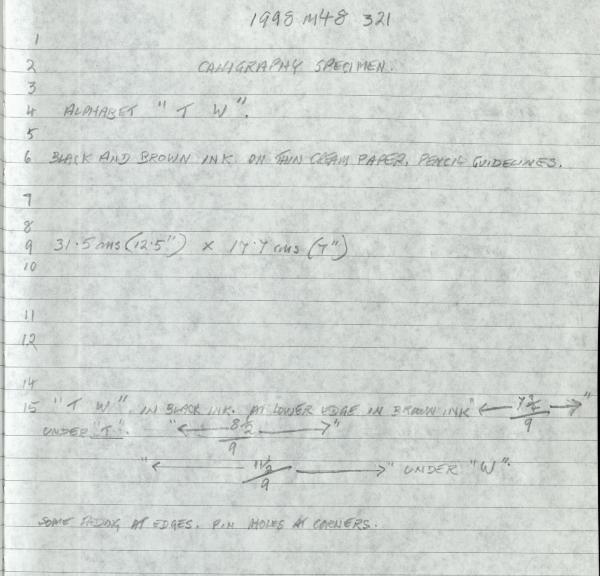 1998 M48 321
1
2 CALLIGRAPHY SPECIMEN.
3
4 ALPHABET "T W".
5
6 BLACK AND BROWN INK ON THIN CREAM PAPER. PENCIL GUIDELINES.
7
8
9 31.5 cms (12.5") x 17.7 cms (7")
10
11
12
14
15 "T W", IN BLACK INK. AT LOWER EDGE IN BROWN INK "← 7½/9 →"
UNDER "T". "← 8½/9 →"
"← 11½/9 →" UNDER "W".
SOME FADING AT EDGES. PIN HOLES AT CORNERS.